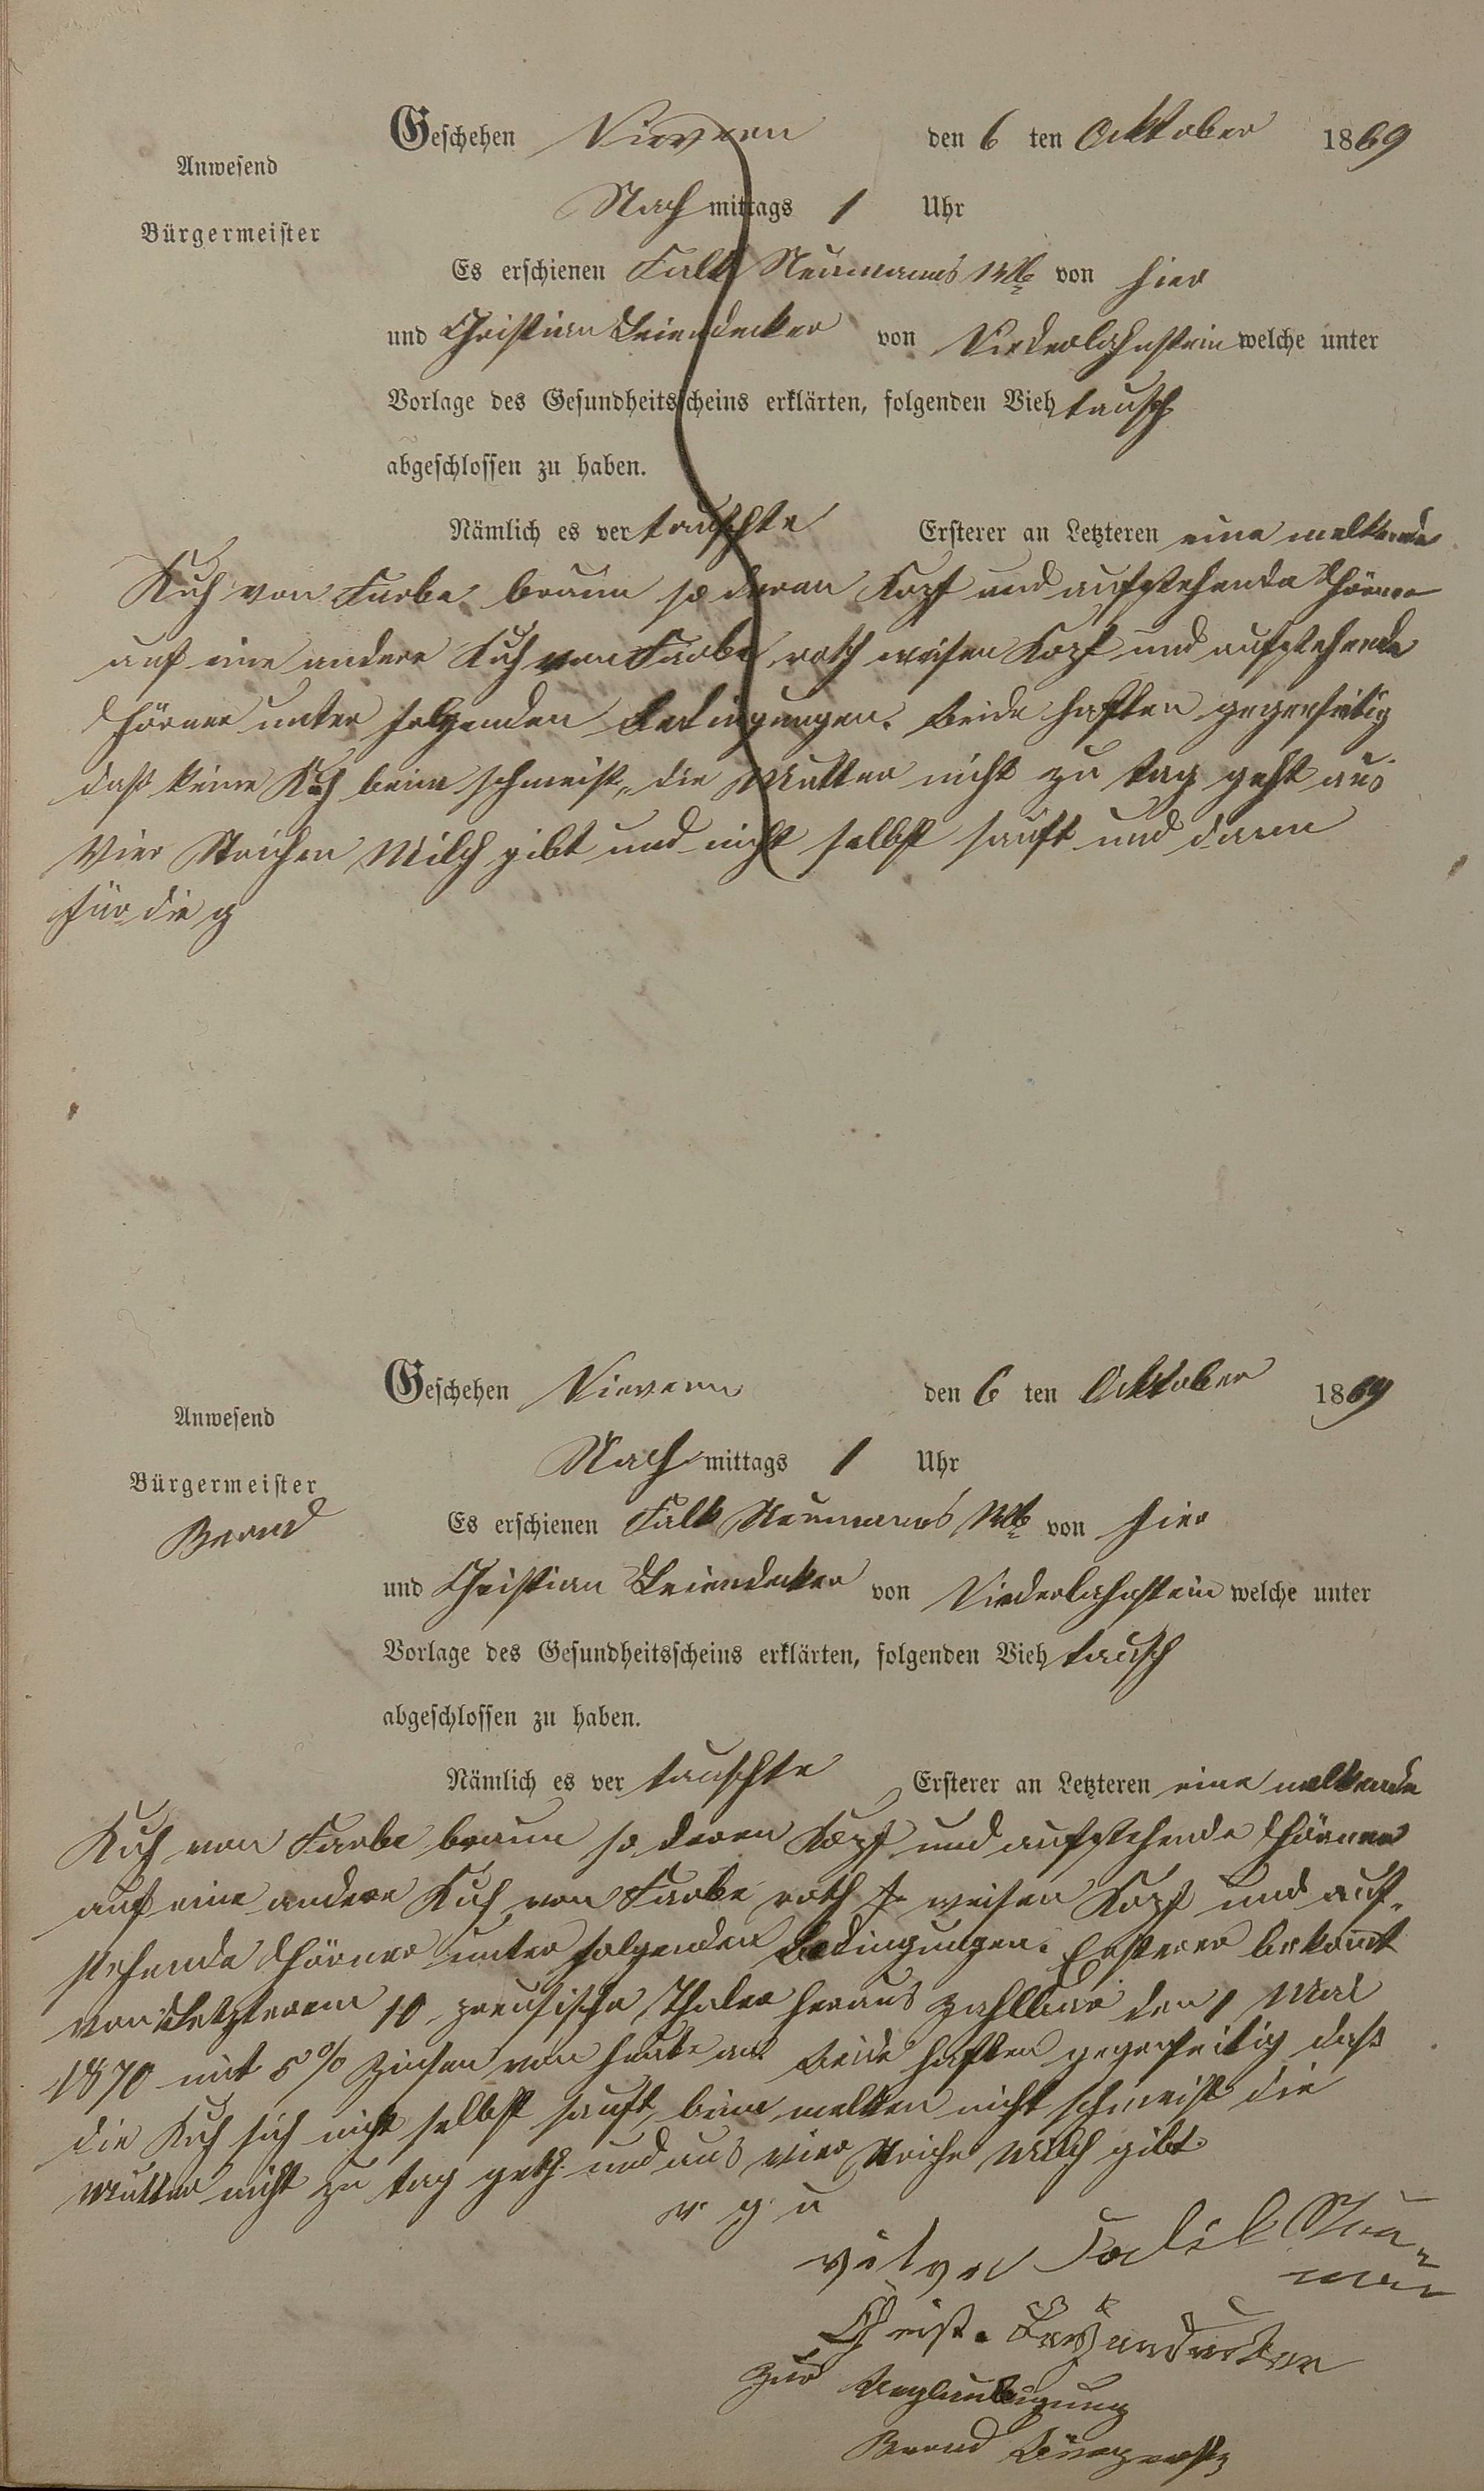 Geschehen Nievern den 6 ten Ocktober 1869
Anwesend
Nach mittags 1 Uhr
Bürgermeister
Es erschienen Falk Neumanns Wb von hier
und Christian Leiendecker von Niederlahnstein welche unter
Vorlage des Gesundheitsscheins erklärten, folgenden Vieh tausch
abgeschlossen zu haben.
Nämlich es ver tauschte Ersterer an Letzteren eine melkende
Kuh von Farbe braun so deren Kopf und aufstehende Hörner
auf eine andere Kuh von Farbe roth weisen Kopf und aufstehende
Hörner unter folgenden Bedingungen. Beide haften gegenseitig
daß keine Kuh beim schmeist, die Mutter nicht zu tag geht aus
Vier Strichen Milch gibt und nicht selbst sauft und dann
für die g
Geschehen Nievern den 6 ten Ocktober 1869
Anwesend
Nach mittags 1 Uhr
Bürgermeister
Bernd
Es erschienen Falk Neumanns Wb von hier
und Christian Leiendecker von Niederlahnstein welche unter
Vorlage des Gesundheitsscheins erklärten, folgenden Vieh tausch
abgeschlossen zu haben.
Nämlich es ver tauschte Ersterer an Letzteren eine melkende
Kuh von Farbe braun so deren Kopf und aufstehende Hörner
auf eine andere Kuh von Farbe roth weisen Kopf und auf-
stehende Hörner unter folgenden Bedingungen. Ersterer bekommt
von Letzterem 10 preusische Thaler heraus zahlbar den 1 Mai
1870 mit 5 % Zinsen von heute an. Beide haften gegenseitig daß
die Kuh sich nicht selbst sauft, beim melken nicht schmeist die
Mutter nicht zu tag geht und aus vier Striche Milch gibt.
v g u
Christ. Leyendecker
Zur Beglaubigung
Bernd Bürgermstr